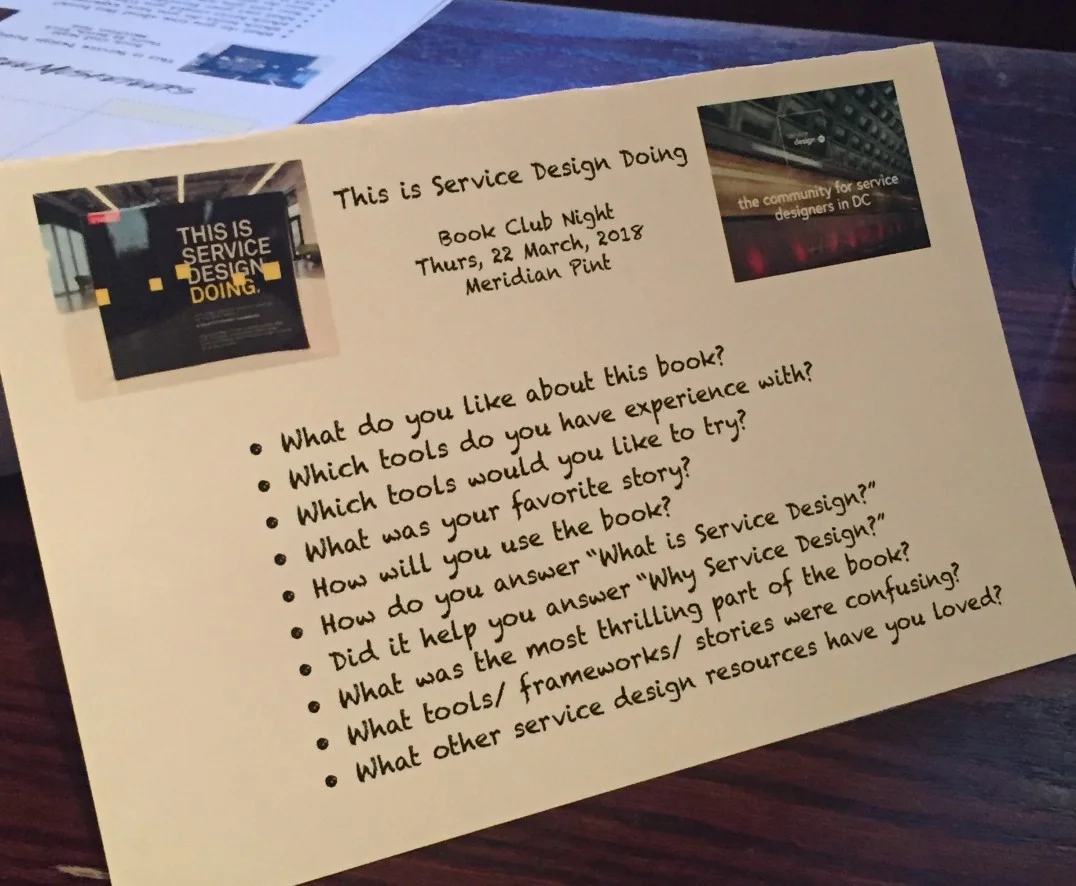 This is Service Design Doing
Book Club Night
Thurs, 22 March, 2018
Meridian Pint
THIS IS
SERVICE
DESIGN
DOING.
design
the community for service
designers in DC
• What do you like about this book?
• Which tools do you have experience with?
• Which tools would you like to try?
• What was your favorite story?
• How will you use the book?
• How do you answer “What is Service Design?”
• Did it help you answer “Why Service Design?”
• What was the most thrilling part of the book?
• What tools/ frameworks/ stories were confusing?
• What other service design resources have you loved?